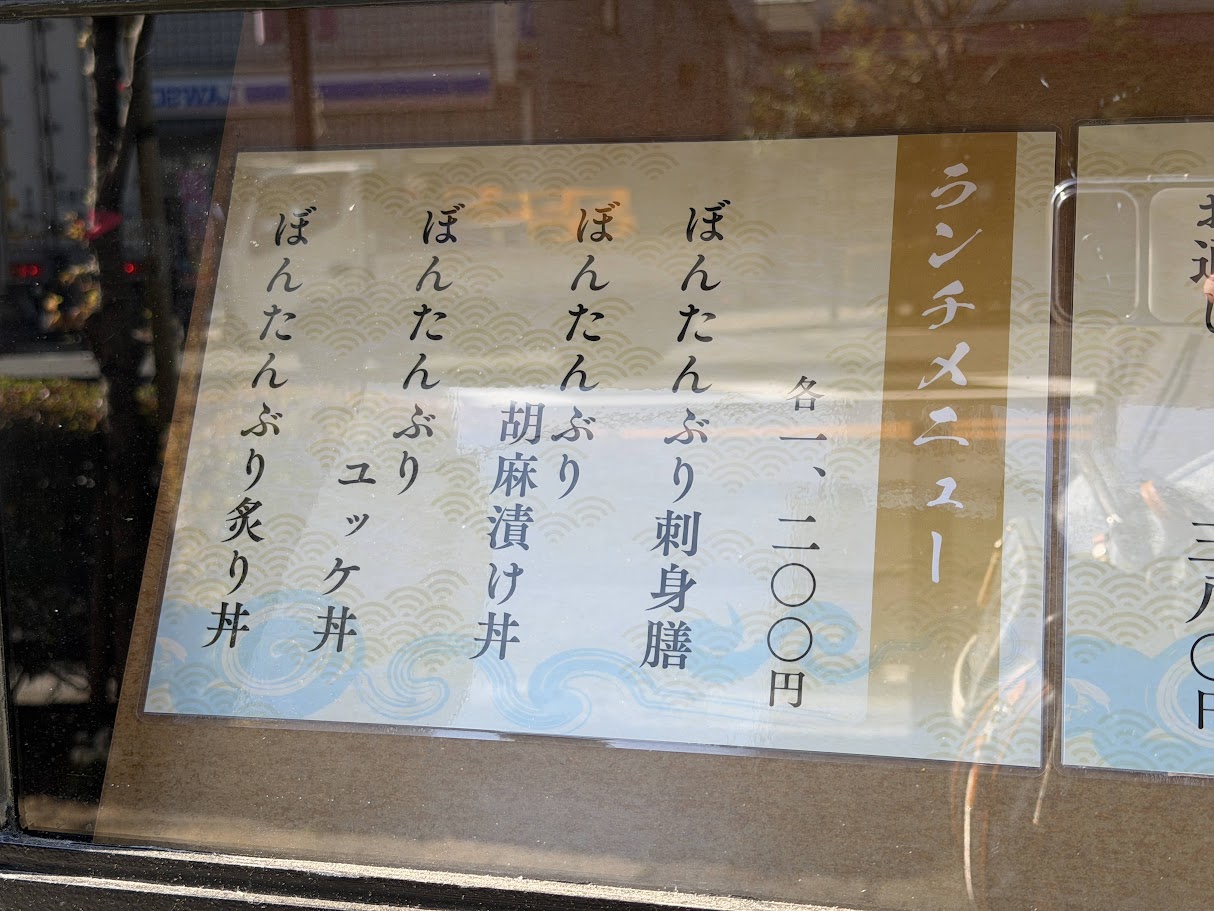 お通し
三八〇円
ランチメニュー
各一、二〇〇円
ぼんたんぶり刺身膳
ぼんたんぶり
胡麻漬け丼
ぼんたんぶり
ユッケ丼
ぼんたんぶり炙り丼